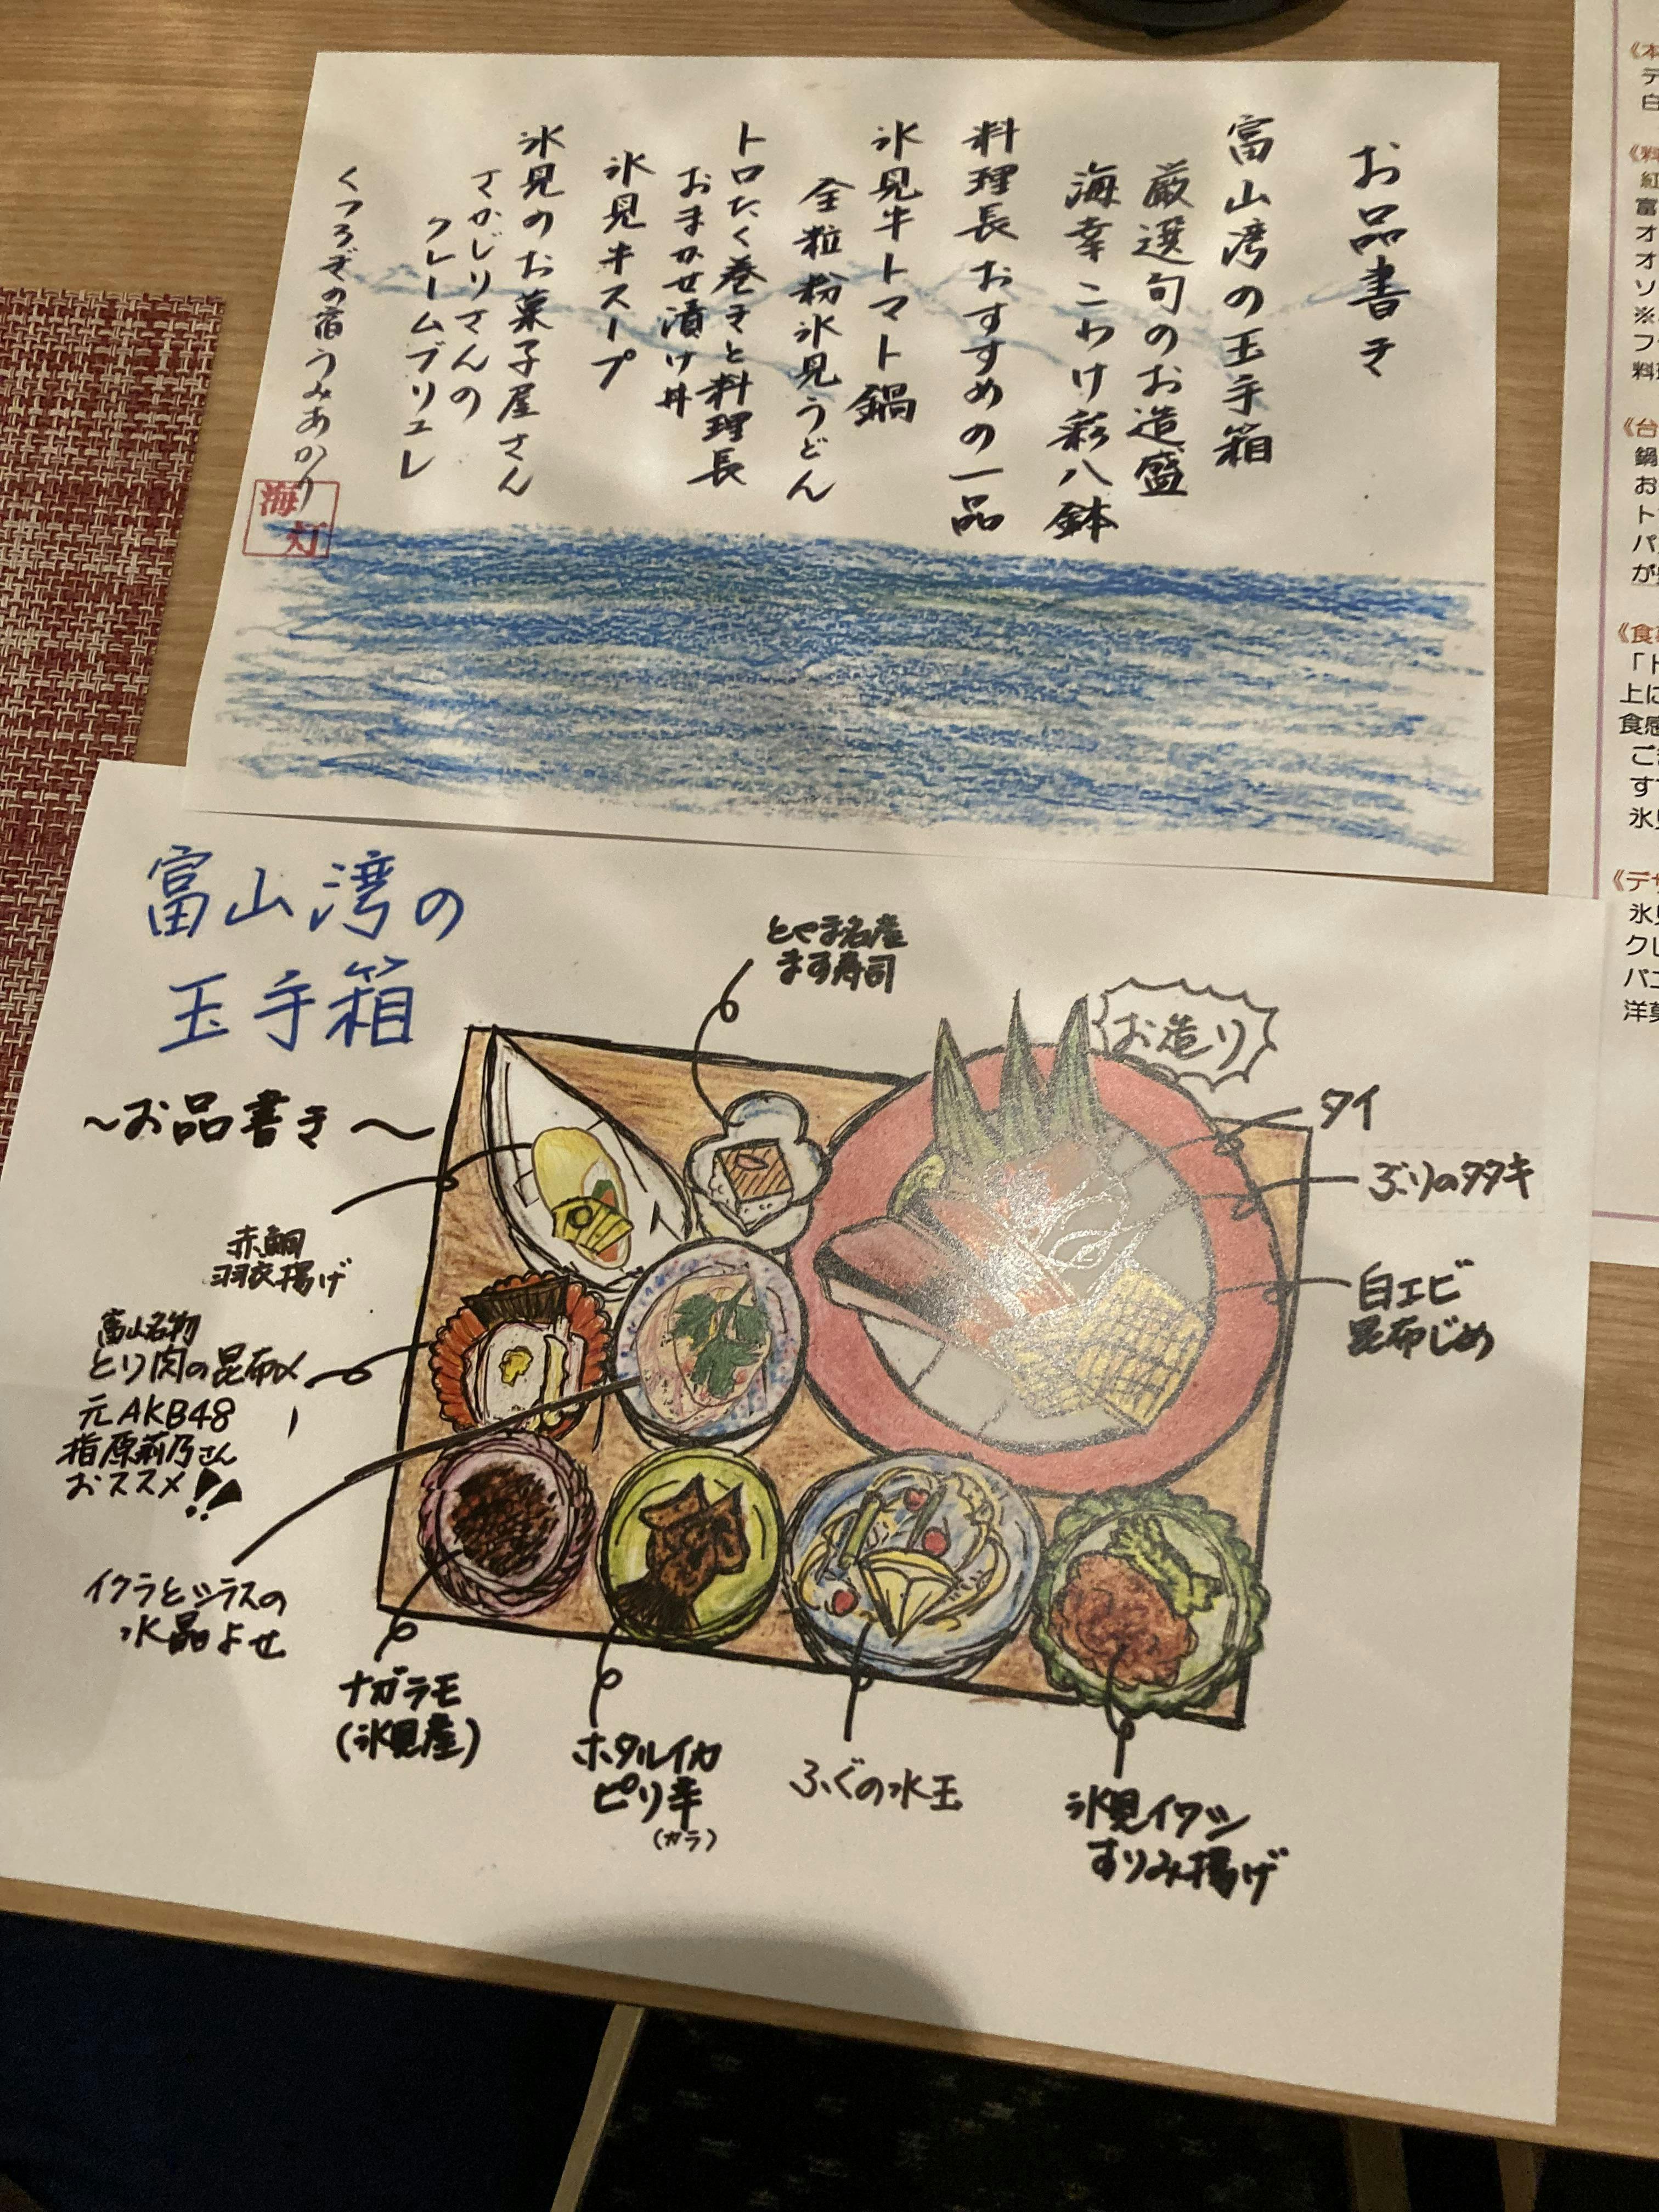 お品書き
富山湾の玉手箱
厳選旬のお造盛
海幸こわけ彩八鉢
料理長おすすめの一品
氷見牛トマト鍋
全粒粉氷見うどん
トロたく巻きと料理長
おまかせ漬け丼
氷見牛スープ
氷見のお菓子屋さん
さかじりさんの
クレームブリュレ
くつろぎの宿うみあかり
海灯
富山湾の
玉手箱
~お品書き~
とやま名産
ます寿司
お造り
タイ
ぶりのタタキ
白エビ
昆布じめ
赤鯛
羽衣揚げ
富山名物
とり肉の昆布〆
元AKB48
指原莉乃さん
おススメ!!
イクラとシラスの
水晶よせ
ナガラモ
(氷見産)
ホタルイカ
ピリ辛
(カラ)
ふぐの水玉
氷見イワシ
すりみ揚げ
《本
デ
白
《料
紅
富
オ
オ
ソ
※
フ
料
《台
鍋
お
ト
パ
が
《食
「ト
上に
食感
ご
す
氷見
《デザ
氷見
クレ
バニ
洋菓